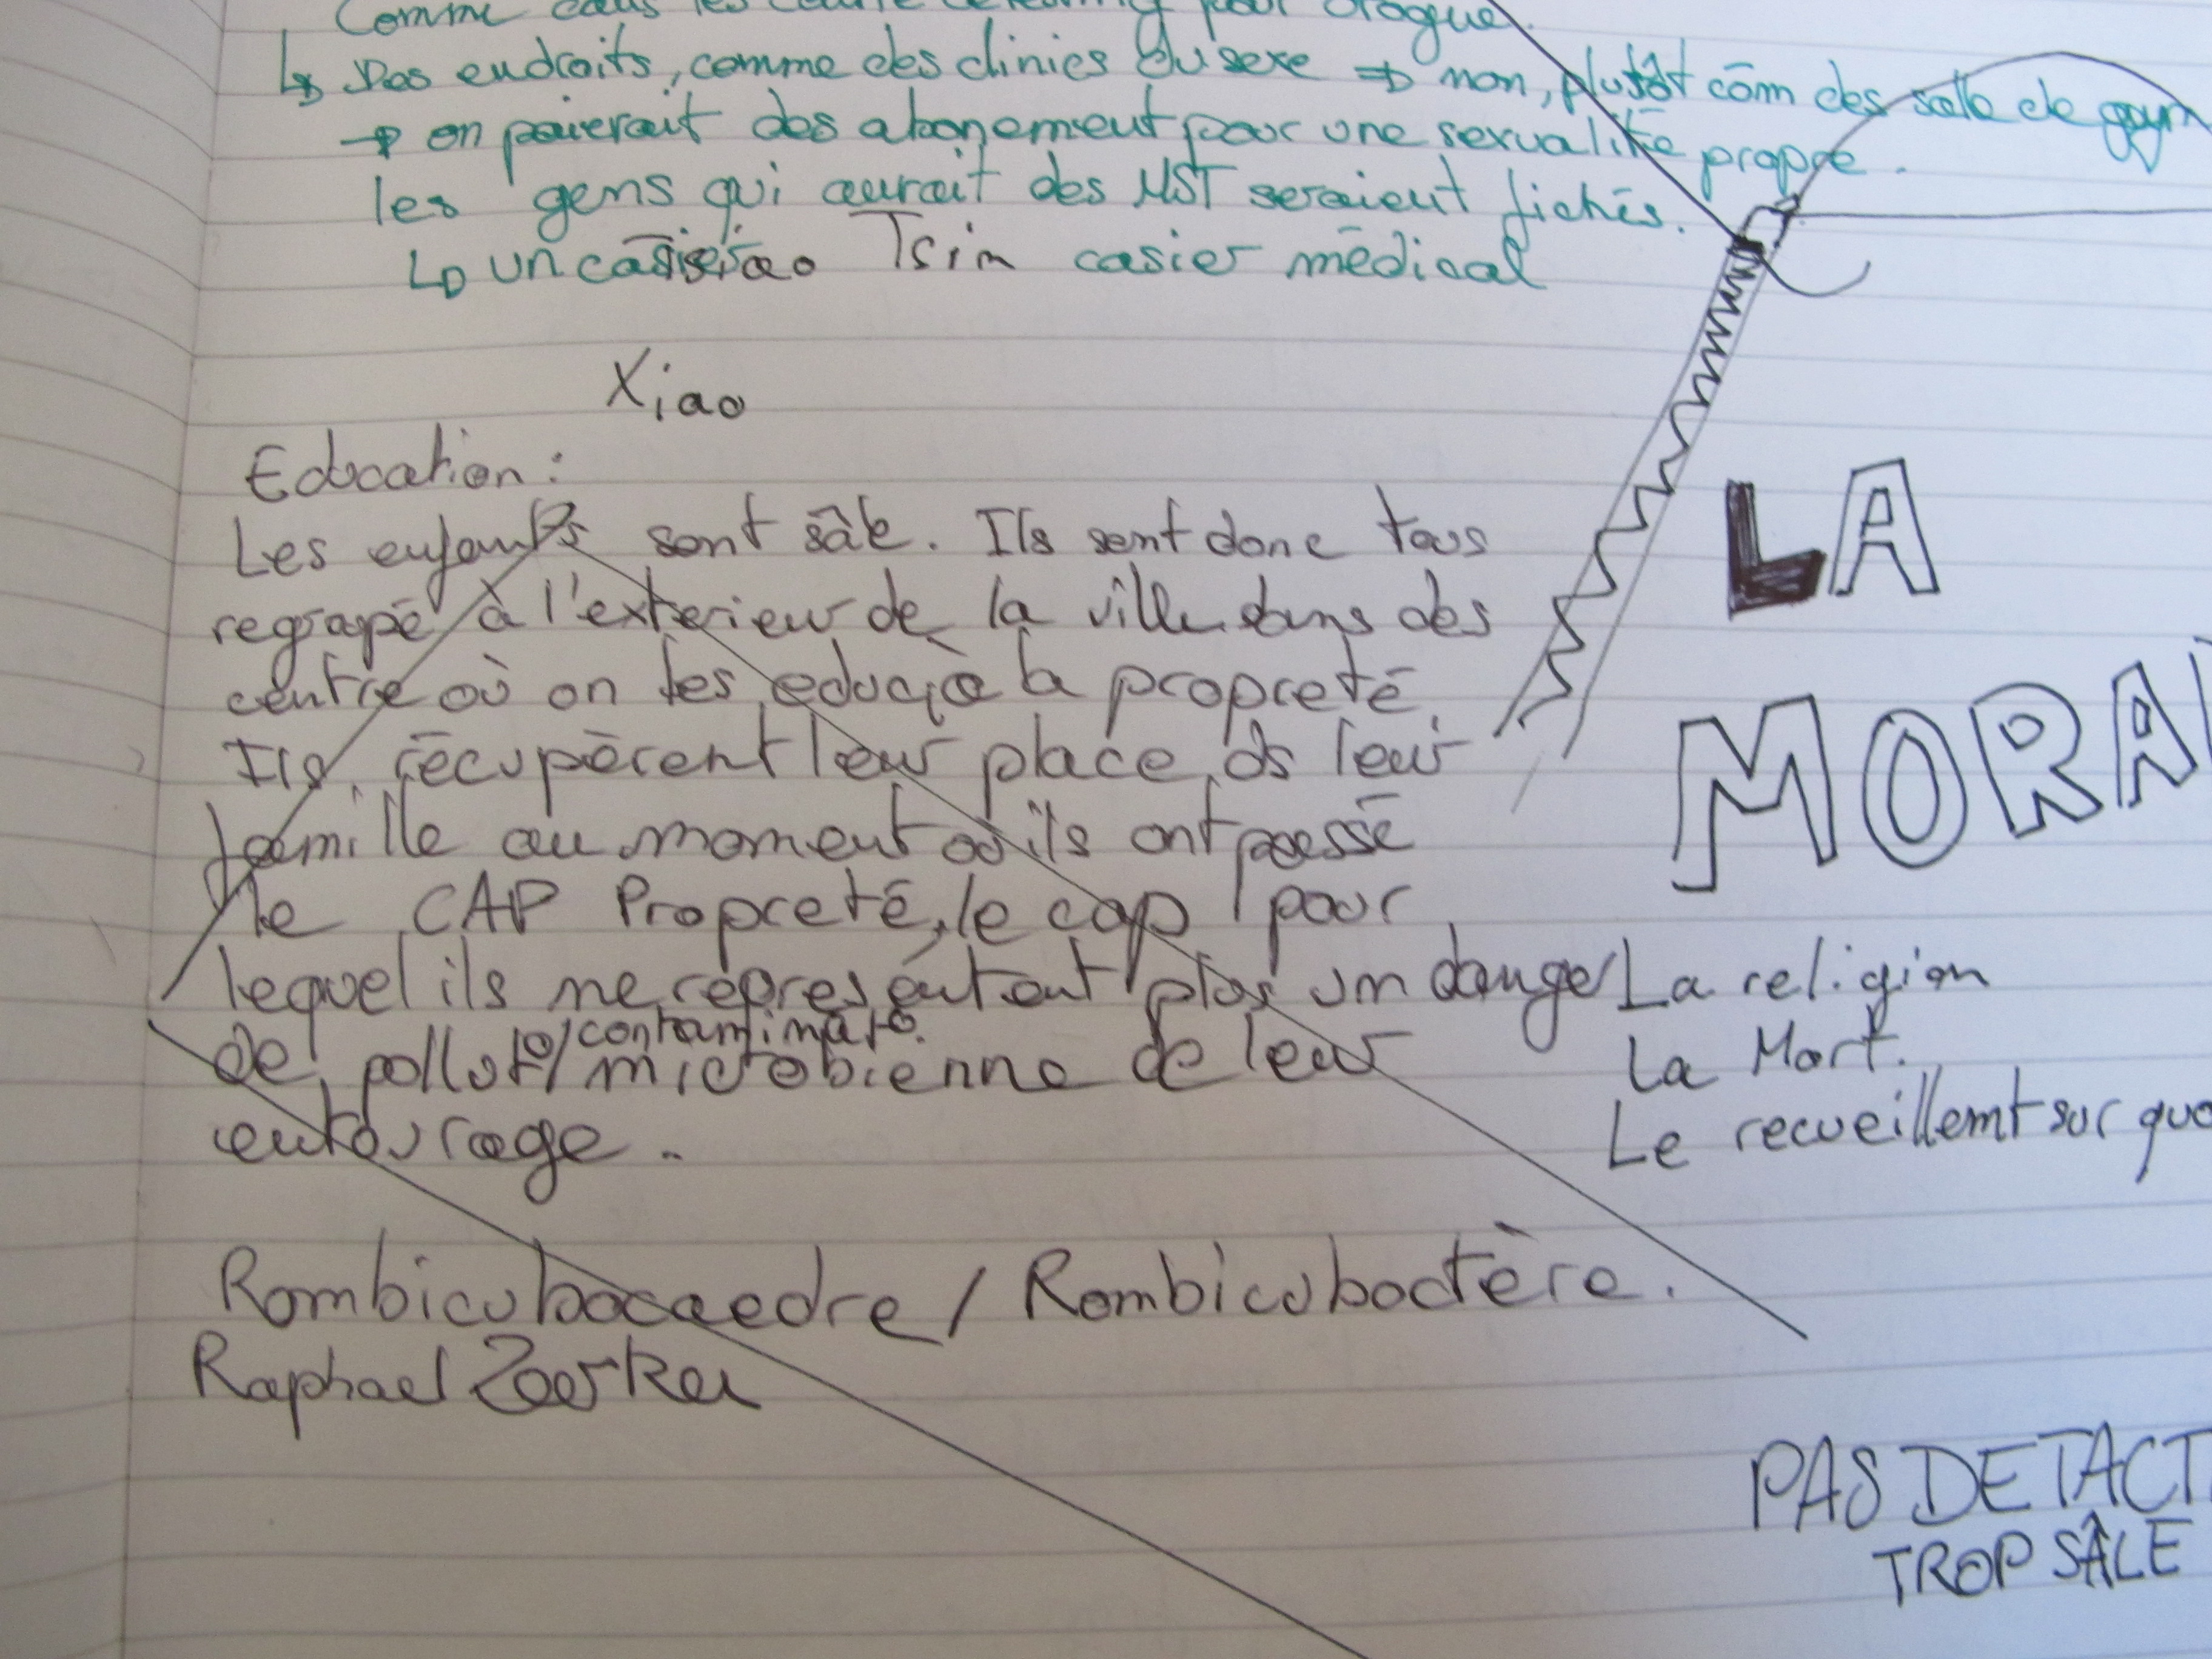 Comme dans les centre pour drogue.
↳ Des endroits, comme des clinics du sexe → non, plutôt côm des salle de gym
→ on paierait des abonement pour une sexualité propre.
les gens qui aurait des MST seraient fichés.
↳ un casier Tsin casier médical
Xiao
Education :
Les enfants sont sâle. Ils sont donc tous
regrapé à l'exterieur de la ville dans des
centre où on les eduq à la propreté.
Ils récupèrent leur place ds leur
famille au moment où ils ont passé
le CAP Propreté, le cap pour
lequel ils ne représentent plus un danger
de pollut°/contaminat°
microbienne de leur
entourage.
Rombicubocaedre / Rombicuboctère.
Raphael
LA
MORA
La religion
La Mort.
Le recueillemt sur quo
PAS DE TACT
TROP SÂLE